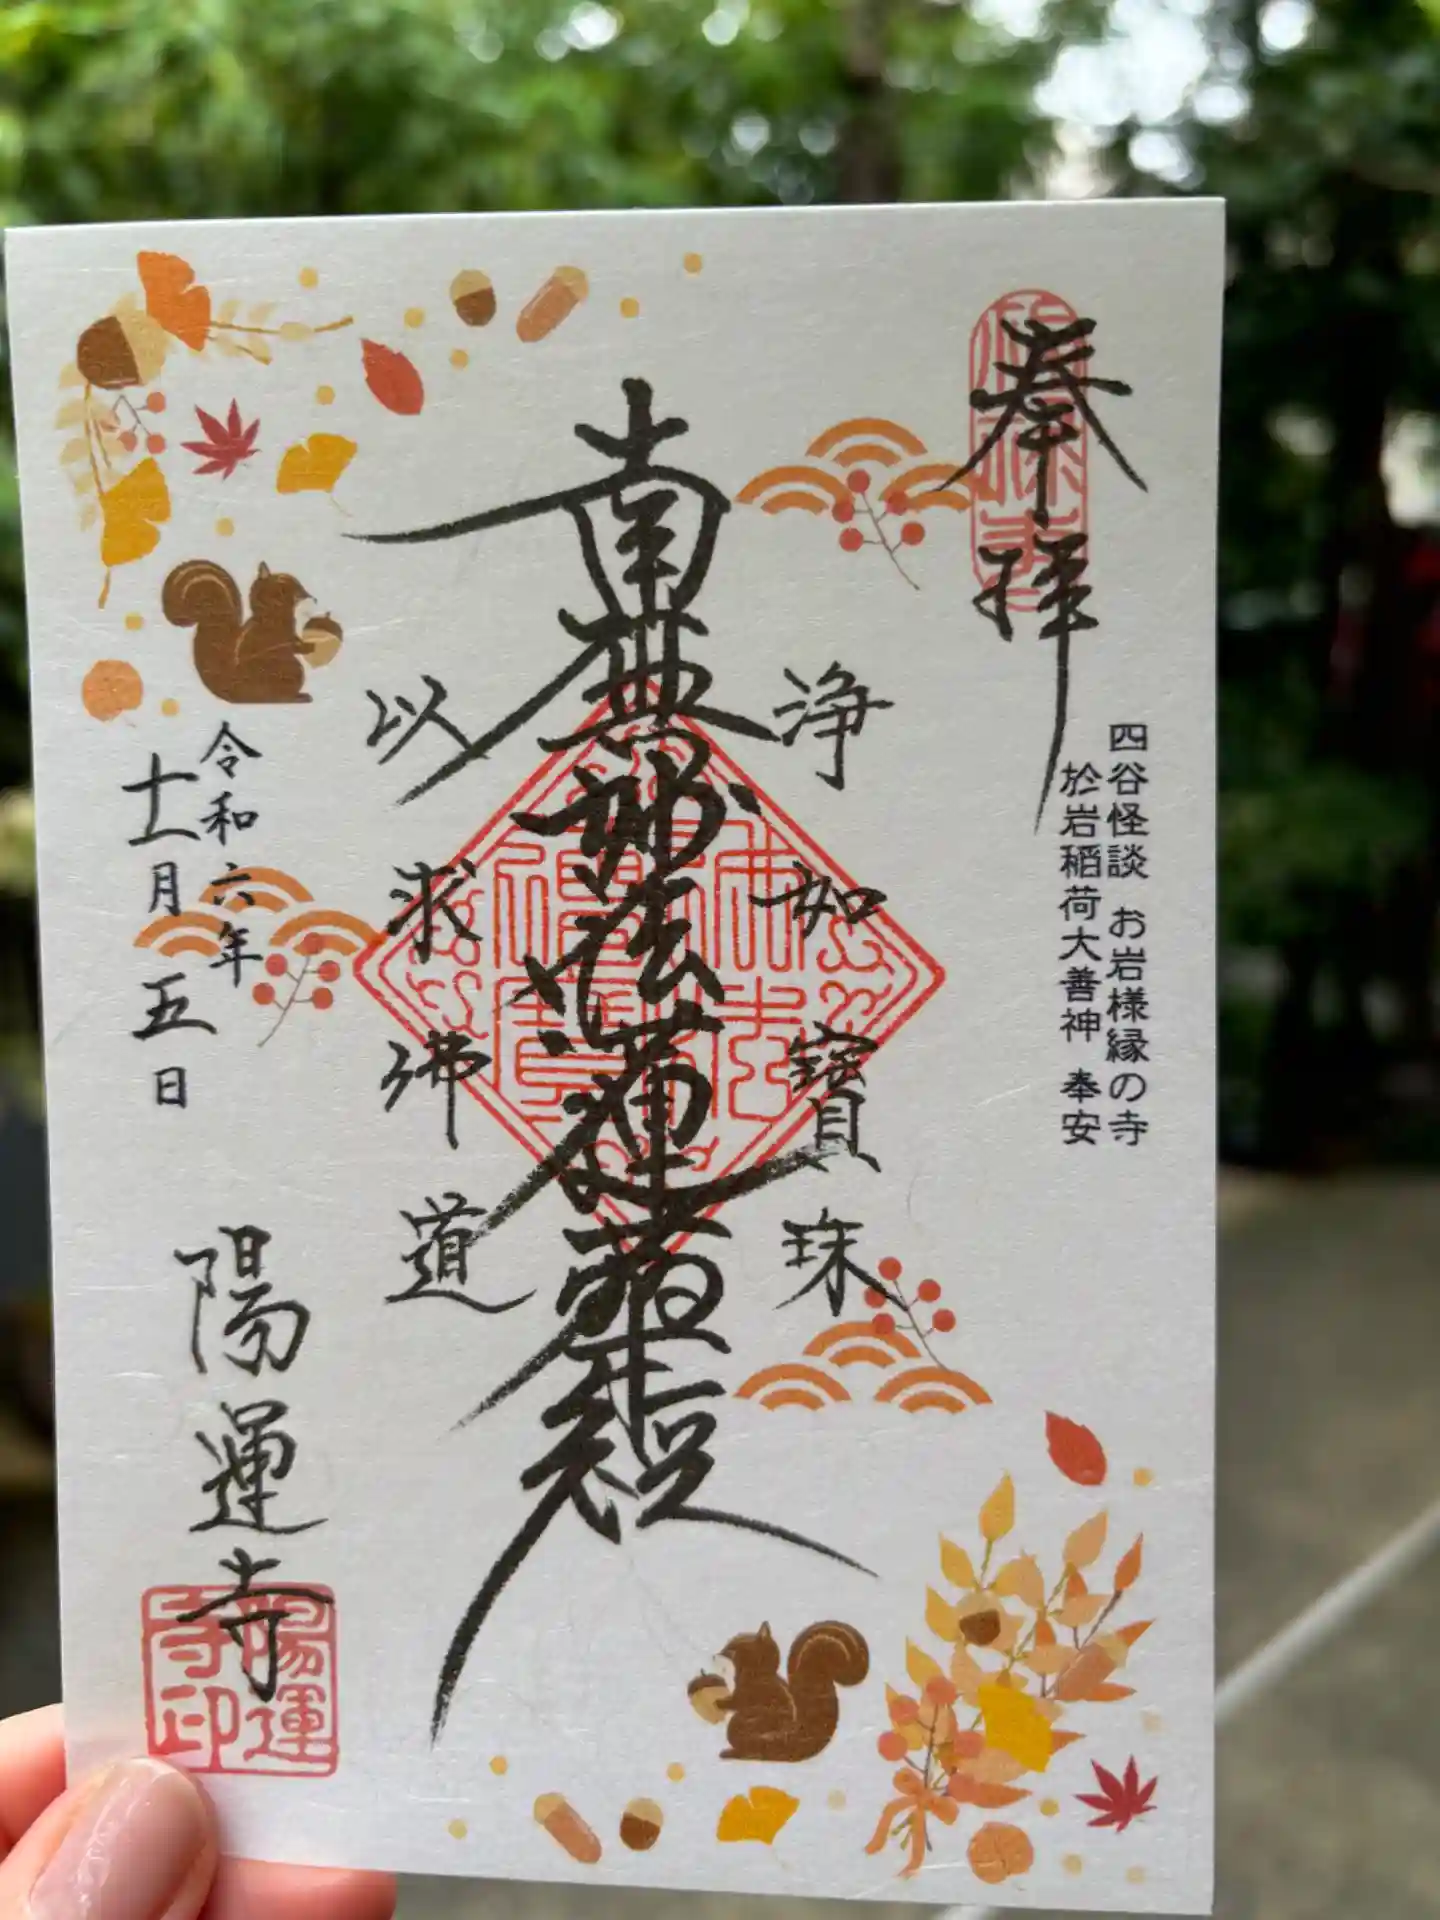 奉拝
四谷怪談 お岩様縁の寺
於岩稲荷大善神 奉安
浄如寶珠
南無妙法蓮華経
以求佛道
令和六年
十一月五日
陽運寺
陽運寺印